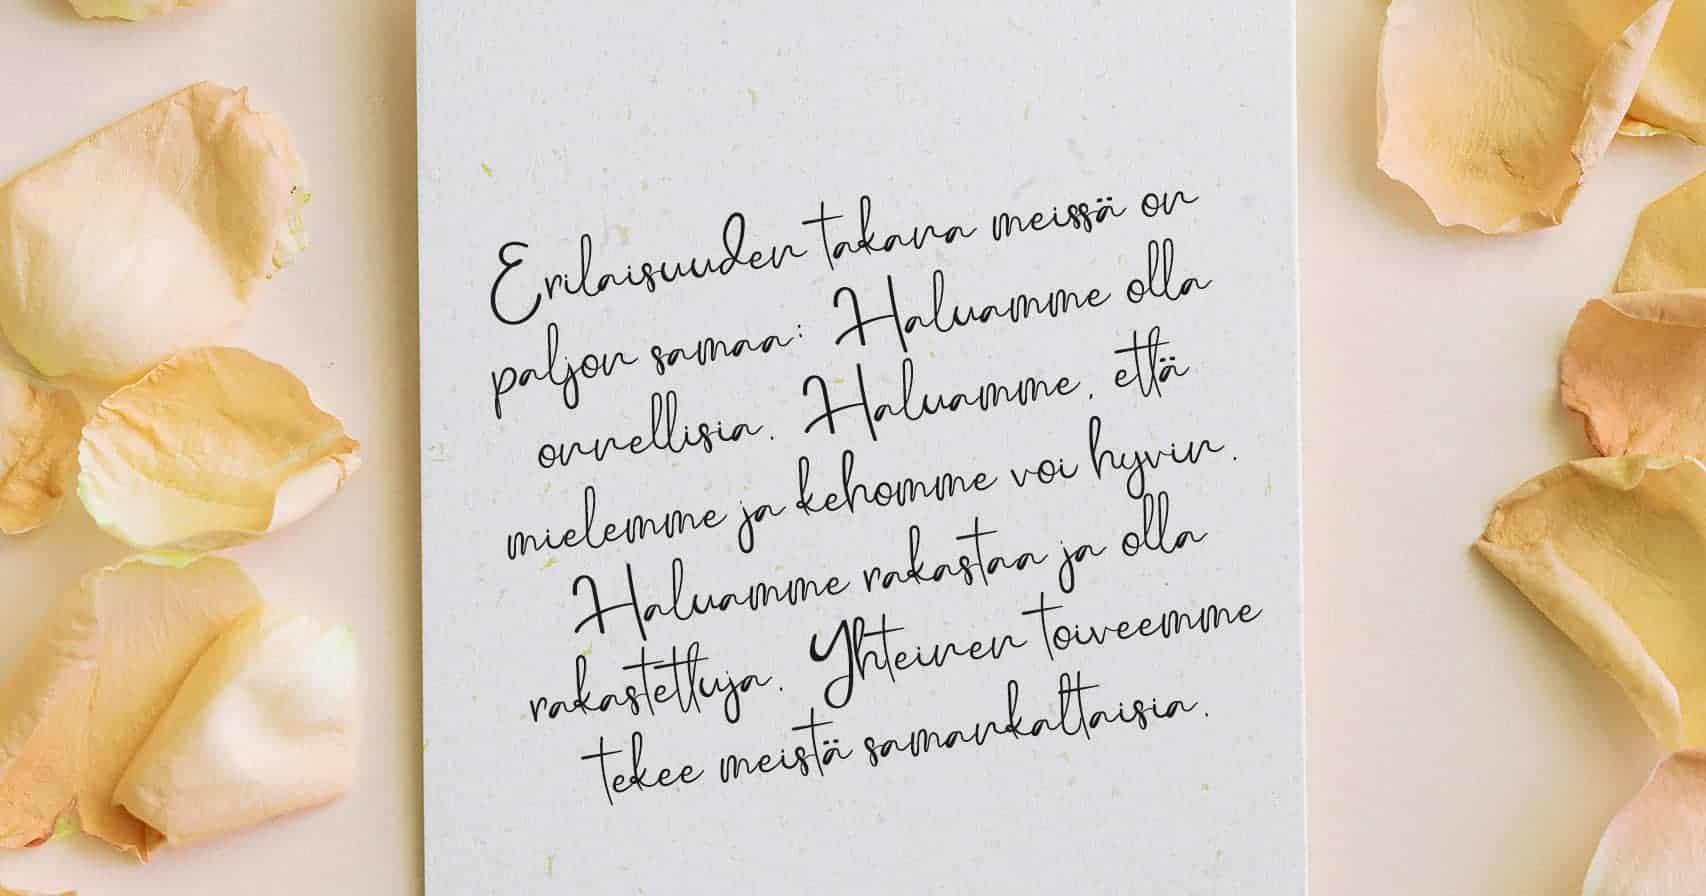 Erilaisuuden takana meissä on
paljon samaa: Haluamme olla
onnellisia. Haluamme, että
mielemme ja kehomme voi hyvin.
Haluamme rakastaa ja olla
rakastettuja. Yhteinen toiveemme
tekee meistä samankaltaisia.